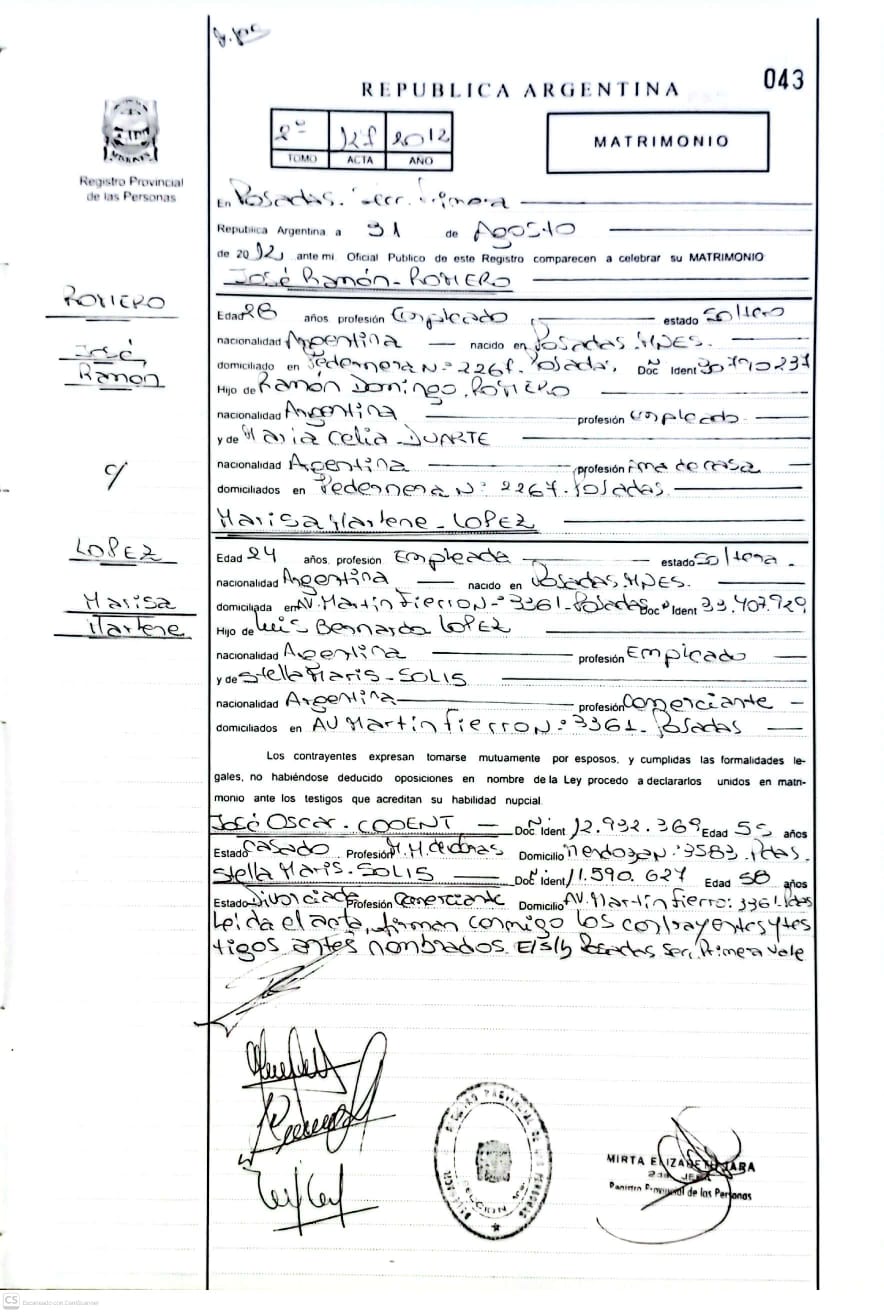 043
REPUBLICA ARGENTINA
2º 2012
TOMO ACTA AÑO
MATRIMONIO
Registro Provincial
de las Personas
En Posadas. Secc. Primera
Republica Argentina a 31 de Agosto
de 2012 ante mi Oficial Publico de este Registro comparecen a celebrar su MATRIMONIO
José Ramón - ROMERO
ROMERO
José
Ramón
Edad 28 años. profesión Empleado estado Soltero
nacionalidad Argentina nacido en Posadas. MNES.
domiciliado en Pedernera Nº 2267. Posadas. Doc Ident 30.790.237
Hijo de Ramón Domingo ROMERO
nacionalidad Argentina profesión empleado
y de Maria Celia - DUARTE
nacionalidad Argentina profesión Ama de casa
domiciliados en Pedernera Nº 2267. Posadas
c/
Marisa Marlene - LOPEZ
LOPEZ
Marisa
Marlene
Edad 24 años. profesión Empleada estado Soltera.
nacionalidad Argentina nacido en Posadas. MNES.
domiciliada en AV. Martin Fierro Nº 3361 - Posadas Doc Ident 33.407.929
Hijo de Luis Bernardo LOPEZ
nacionalidad Argentina profesión Empleado
y de Stella Maris - SOLIS
nacionalidad Argentina profesión Comerciante
domiciliados en AV Martin Fierro Nº 3361. Posadas
Los contrayentes expresan tomarse mutuamente por esposos, y cumplidas las formalidades le-
gales, no habiéndose deducido oposiciones en nombre de la Ley procedo a declararlos unidos en matri-
monio ante los testigos que acreditan su habilidad nupcial.
José Oscar - Doc Ident 12.932.369 Edad 55 años
Estado Casado Profesión Domicilio Mendoza Nº 3583. Pdas.
Stella Maris - SOLIS Doc Ident 11.590.627 Edad 58 años
Estado Divorciada Profesión Comerciante Domicilio AV. Martin Fierro: 3361. Pdas
Leída el acta, firman conmigo los contrayentes y tes
tigos antes nombrados. E/S/b Posadas Sec. Primera Vale
MIRTA ELIZABETH JARA
Registro Provincial de las Personas
CS Escaneado con CamScanner